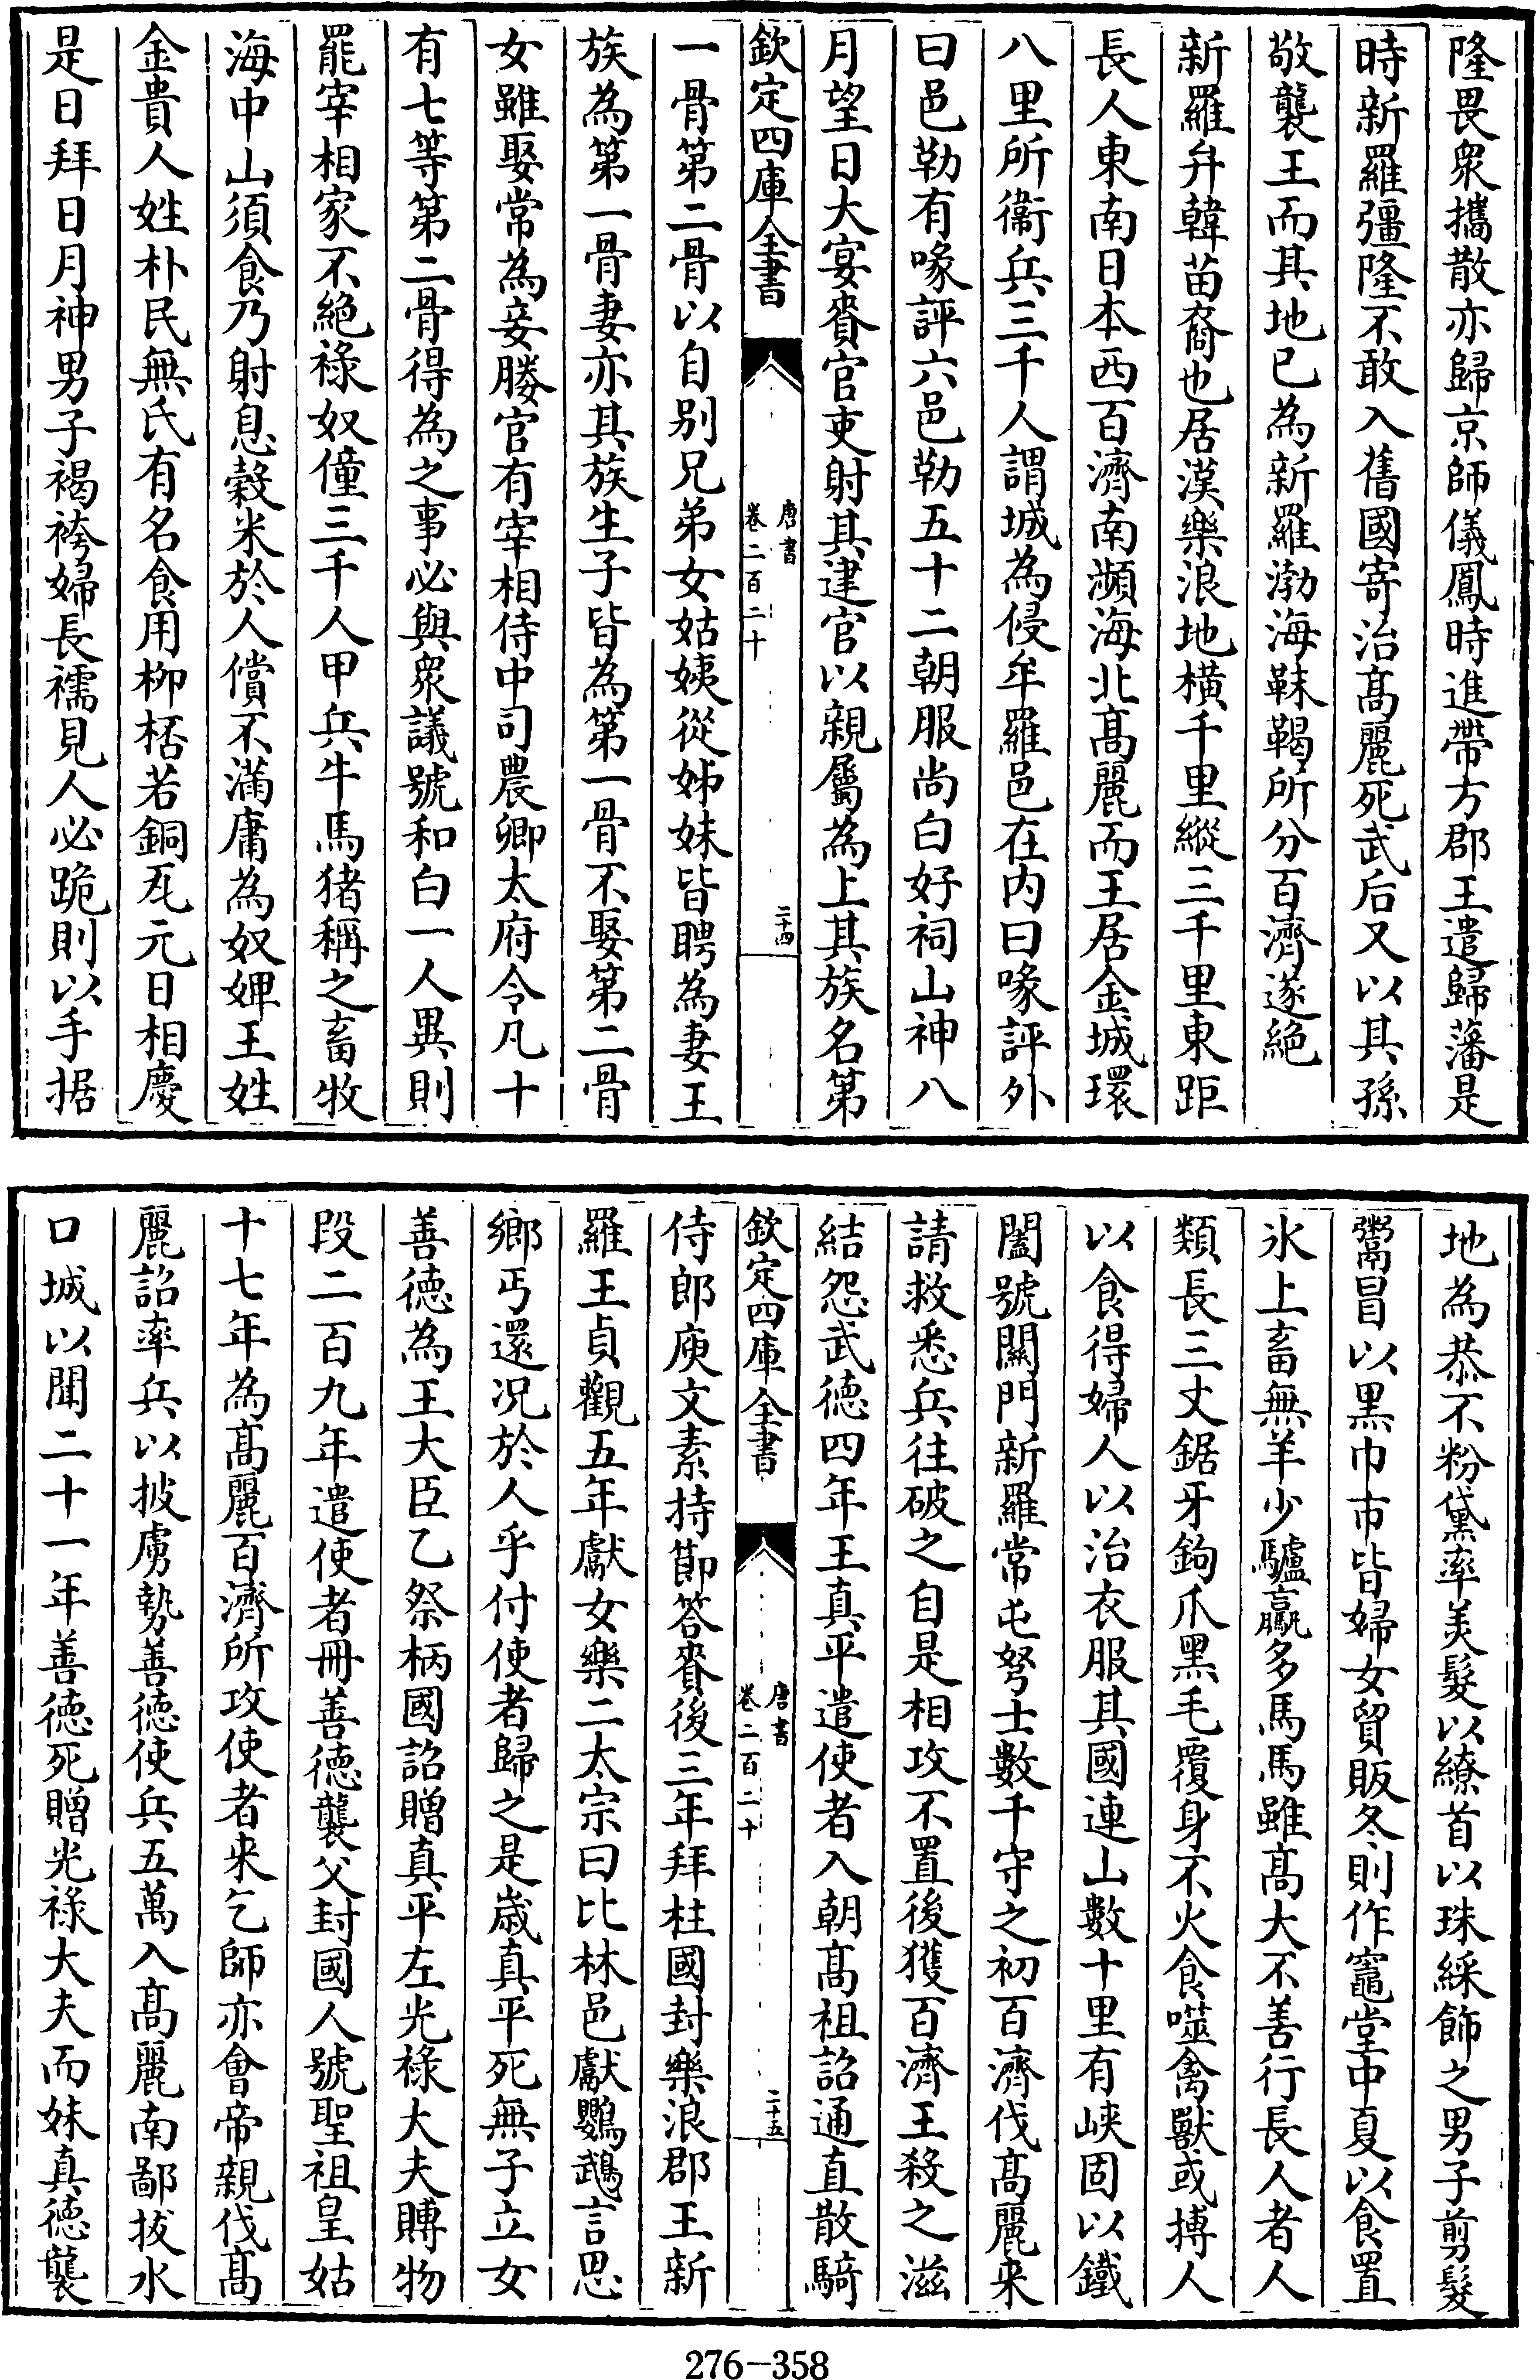 隆畏衆攜散亦歸京師儀鳳時進帶方郡王遣歸藩是
時新羅彊隆不敢入舊國寄治髙麗死武后又以其孫
敬襲王而其地已為新羅渤海靺鞨所分百濟遂絶
新羅弁韓苗裔也居漢樂浪地橫千里縱三千里東距
長人東南日本西百濟南瀕海北髙麗而王居金城環
八里所衞兵三千人謂城為侵牟羅邑在内曰喙評外
曰邑勒有喙評六邑勒五十二朝服尚白好祠山神八
月望日大宴賚官吏射其建官以親屬為上其族名第
欽定四庫全書
唐書
卷二百二十
二十四
一骨第二骨以自別兄弟女姑姨從姊妹皆聘為妻王
族為第一骨妻亦其族生子皆為第一骨不娶第二骨
女雖娶常為妾媵官有宰相侍中司農卿太府令凡十
有七等第二骨得為之事必與衆議號和白一人異則
罷宰相家不絶祿奴僮三千人甲兵牛馬猪稱之畜牧
海中山須食乃射息穀米於人償不滿庸為奴婢王姓
金貴人姓朴民無氏有名食用柳桮若銅瓦元日相慶
是日拜日月神男子褐袴婦長襦見人必跪則以手据
地為恭不粉黛率美髮以繚首以珠綵飾之男子剪髮
鬻冒以黒巾市皆婦女貿販冬則作竈堂中夏以食置
氷上畜無羊少驢驘多馬馬雖髙大不善行長人者人
類長三丈鋸牙鉤爪黑毛覆身不火食噬禽獸或搏人
以食得婦人以治衣服其國連山數十里有峽固以鐵
闔號關門新羅常屯弩士數千守之初百濟伐髙麗来
請救悉兵往破之自是相攻不置後獲百濟王殺之滋
結怨武徳四年王真平遣使者入朝髙祖詔通直散騎
欽定四庫全書
唐書
卷二百二十
二十五
侍郎庾文素持節答賚後三年拜柱國封樂浪郡王新
羅王貞觀五年獻女樂二太宗曰比林邑獻鸚鵡言思
鄉丐還况於人乎付使者歸之是歲真平死無子立女
善徳為王大臣乙祭柄國詔贈真平左光祿大夫賻物
段二百九年遣使者冊善徳襲父封國人號聖祖皇姑
十七年為髙麗百濟所攻使者来乞師亦會帝親伐髙
麗詔率兵以披虜勢善徳使兵五萬入髙麗南鄙拔水
口城以聞二十一年善徳死贈光祿大夫而妹真徳襲
276-358